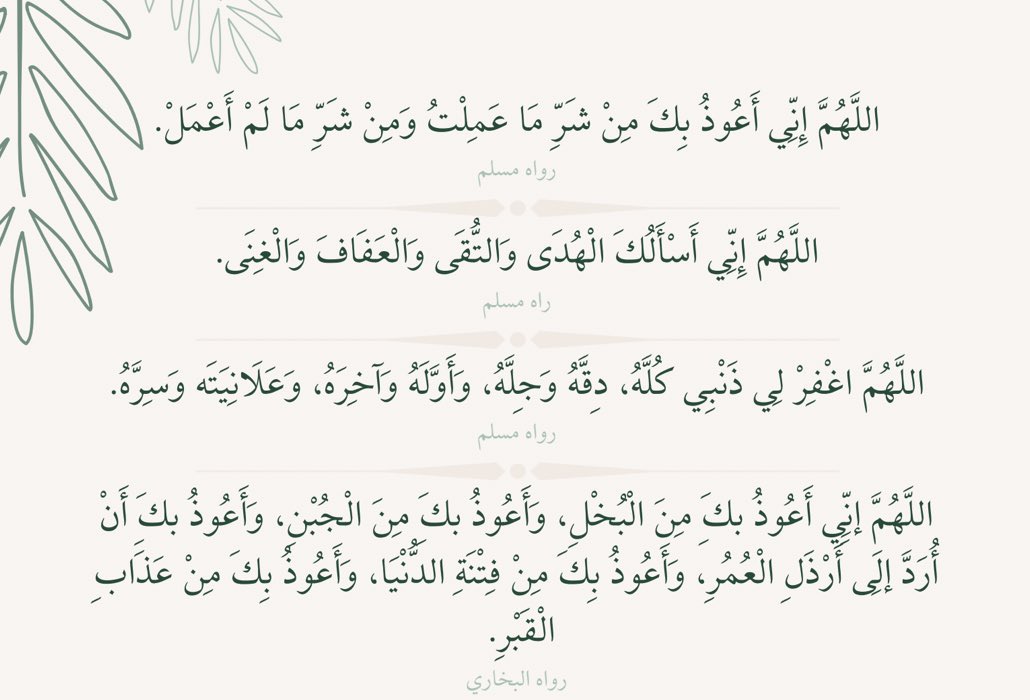 اللَّهُمَّ إِنِّي أَعُوذُ بِكَ مِنْ شَرِّ مَا عَمِلْتُ وَمِنْ شَرِّ مَا لَمْ أَعْمَلْ.
رواه مسلم
اللَّهُمَّ إِنِّي أَسْأَلُكَ الْهُدَى وَالتُّقَى وَالْعَفَافَ وَالْغِنَى.
راه مسلم
اللَّهُمَّ اغْفِرْ لِي ذَنْبِي كُلَّهُ، دِقَّهُ وَجِلَّهُ، وَأَوَّلَهُ وَآخِرَهُ، وَعَلَانِيَتَه وَسِرَّهُ.
رواه مسلم
اللَّهُمَّ إنِّي أَعُوذُ بكَ مِنَ الْبُخْلِ، وَأَعُوذُ بكَ مِنَ الْجُبْنِ، وَأَعُوذُ بكَ أَنْ
أُرَدَّ إلَى أَرْذَلِ الْعُمُرِ، وَأَعُوذُ بِكَ مِنْ فِتْنَةِ الدُّنْيَا، وَأَعُوذُ بِكَ مِنْ عَذَابِ
الْقَبْرِ.
رواه البخاري